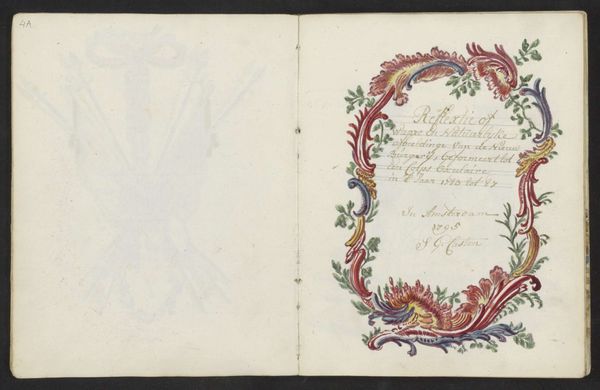 4A
Reflextie of
Waare en Natuurlyke
afbeeldinge van de Nieuwe
Burgery Geformeert tot
een Corps
in t Jaar 1783 tot 87
In Amsterdam
1795
S G Casten